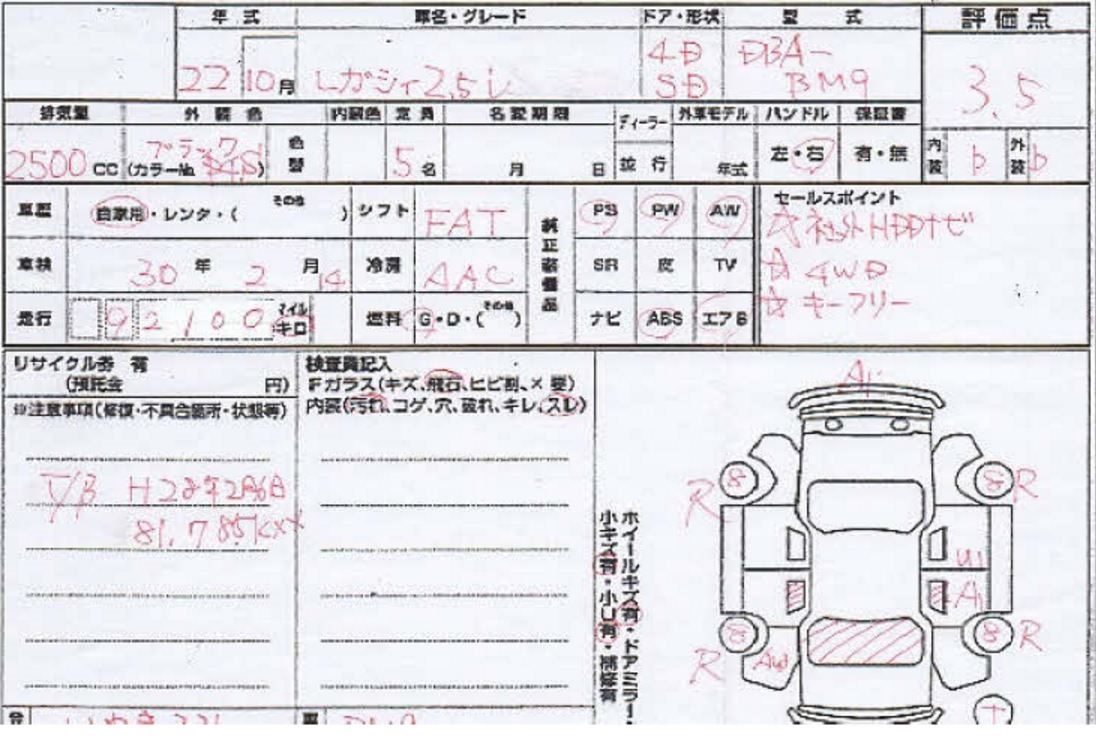 年式 車名・グレード ドア・形状 型式 評価点
22 10月 レガシィ2.5i 4D SD DBA-BM9 3.5
排気量 外装色 内装色 定員 名変期限 ディーラー 外車モデル ハンドル 保証書 内装 b 外装 b
2500cc ブラック (カラーNo. ) 色替 5名 月 日 並行 年式 左・右 有・無
車歴 自家用・レンタ・( その他 ) シフト FAT 純正装備品 PS PW AW セールスポイント
☆社外HDDナビ
車検 30年 2月 14 冷房 AAC SR 皮 TV ☆4WD
☆キーフリー
走行 92100 マイル キロ 燃料 G・D・( その他 ) ナビ ABS エアB
リサイクル券 有
(預託金 円)
※注意事項(修復・不具合箇所・状態等)
T/B H28年2月6日
81,785km
検査員記入
Fガラス(キズ、飛石、ヒビ割、×要)
内装(汚れ、コゲ、穴、破れ、キレ、スレ)
ホイールキズ有・ドアミラー
小キズ有・小U有・補修有
A1
8 8
R R
U1
A1
8 8
R R